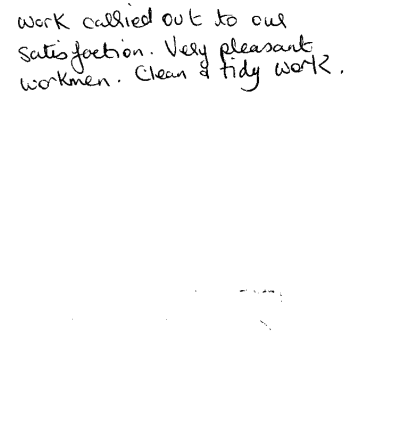 work carried out to our
satisfaction. Very pleasant
workmen. Clean & tidy work.